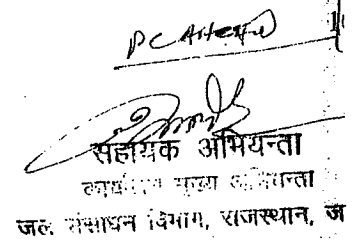 सहायक अभियन्ता
कार्यालय मुख्य अभियन्ता
जल संसाधन विभाग, राजस्थान, ज